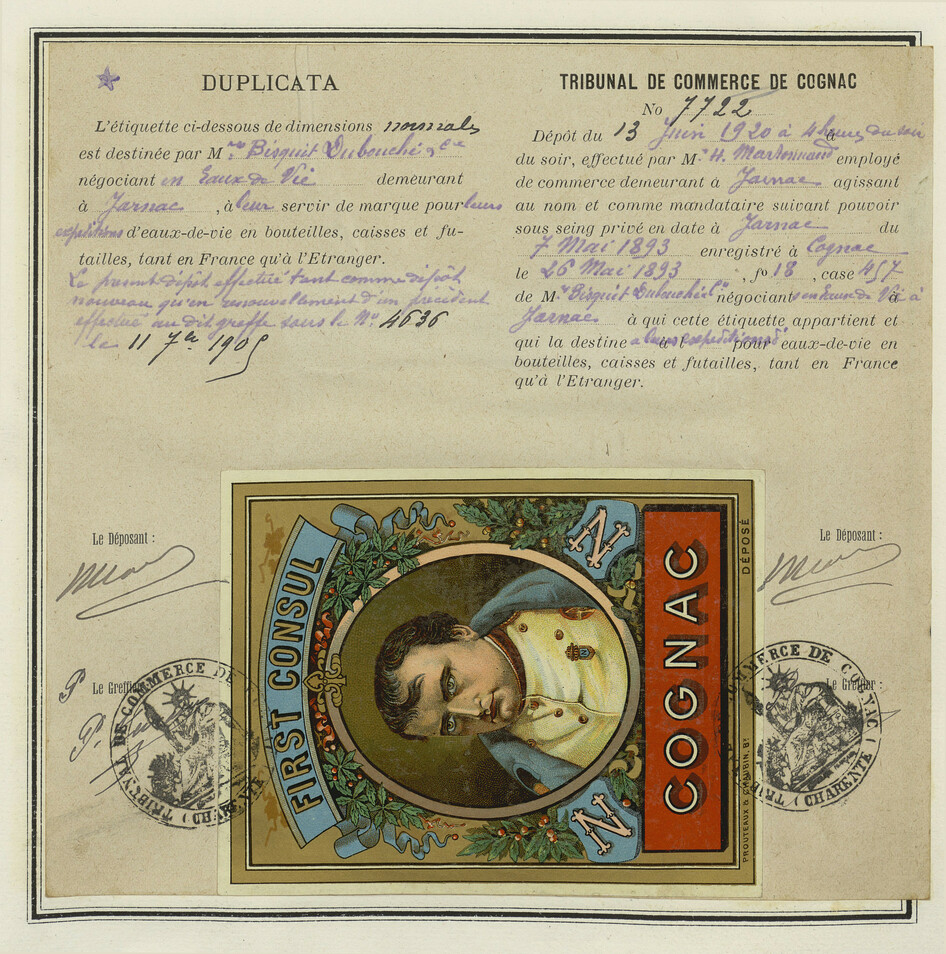 DUPLICATA
L'étiquette ci-dessous de dimensions normales
est destinée par Mrs Bisquit Dubouché & Cie
négociant en Eaux de Vie demeurant
à Jarnac, à leur servir de marque pour leurs
expéditions d'eaux-de-vie en bouteilles, caisses et fu-
tailles, tant en France qu'à l'Etranger.
Le présent dépôt effectué tant comme dépôt
nouveau qu'en renouvellement d'un précédent
effectué au dit greffe sous le No. 4636
le 11 7bre 1905
TRIBUNAL DE COMMERCE DE COGNAC
No 7722
Dépôt du 13 Juin 1920 à 4 heures du soir
du soir, effectué par Mr H. employé
de commerce demeurant à Jarnac agissant
au nom et comme mandataire suivant pouvoir
sous seing privé en date à Jarnac du
7 Mai 1893 enregistré à Cognac
le 26 Mai 1893, fo 18, case 457
de Mrs Bisquit Dubouché & Cie négociants en Eaux de Vie à
Jarnac à qui cette étiquette appartient et
qui la destine à leurs expéditions d'eaux-de-vie en
bouteilles, caisses et futailles, tant en France
qu'à l'Etranger.
Le Déposant :
Le Déposant :
Le Greffier :
TRIBUNAL DE COMMERCE DE COGNAC (CHARENTE)
FIRST CONSUL
N
N
COGNAC
DÉPOSÉ
PROUTEAUX & CHAUBIN, Bx
Le Greffier :
TRIBUNAL DE COMMERCE DE COGNAC (CHARENTE)